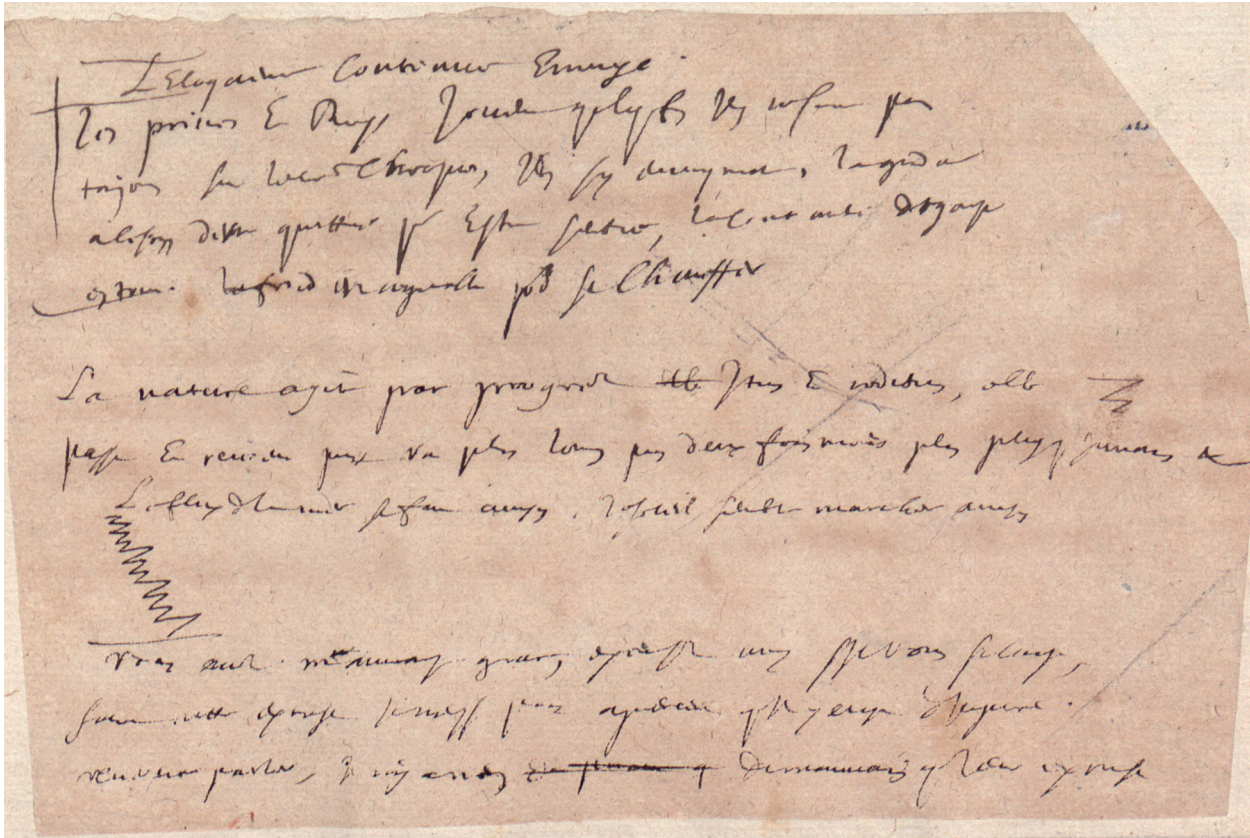 L'Eloquence Continue Ennuye.
Les princes Et Roys Jouent quelquefois Ils ne sont pas
toujours sur leurs Thrones, Ils sy ennuyent, la grandeur
a besoin destre quittée pr Estre sentie, la continuité degoute
en tout. le froid est agreable pr se Chauffer
La nature agit par progrez Itus Et reditus, elle
passe Et revient puis va plus loing puis deux fois moins puis plus que jamais &c
Le flux de la mer se fait ainsy, le soleil semble marcher ainsy
vous avez mauvaise grace, excusez moy s'il vous plaist,
sans cette excuse je n'eusse pas aperceu qu'il y eust d'injure.
reverence parler, il n'y a rien de mauvais que leur excuse